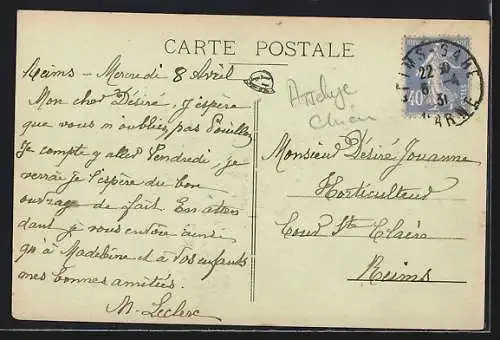 CARTE POSTALE
Reims - Mercredi 8 Avril
Mon cher Désiré, j'espère
que vous n'oubliez pas Pouillon
Je compte y aller Vendredi, je
verrai je l'espère du bon
ouvrage de fait. En atten
dant je vous envoie ainsi
qu'à Madeleine et à vos enfants
mes bonnes amitiés.
M. Leclerc
Attelage
Chien
Monsieur Désiré Jouanne
Horticulteur
Cour Ste Claire
Reims
REIMS-GARE
22
31
MARNE
40